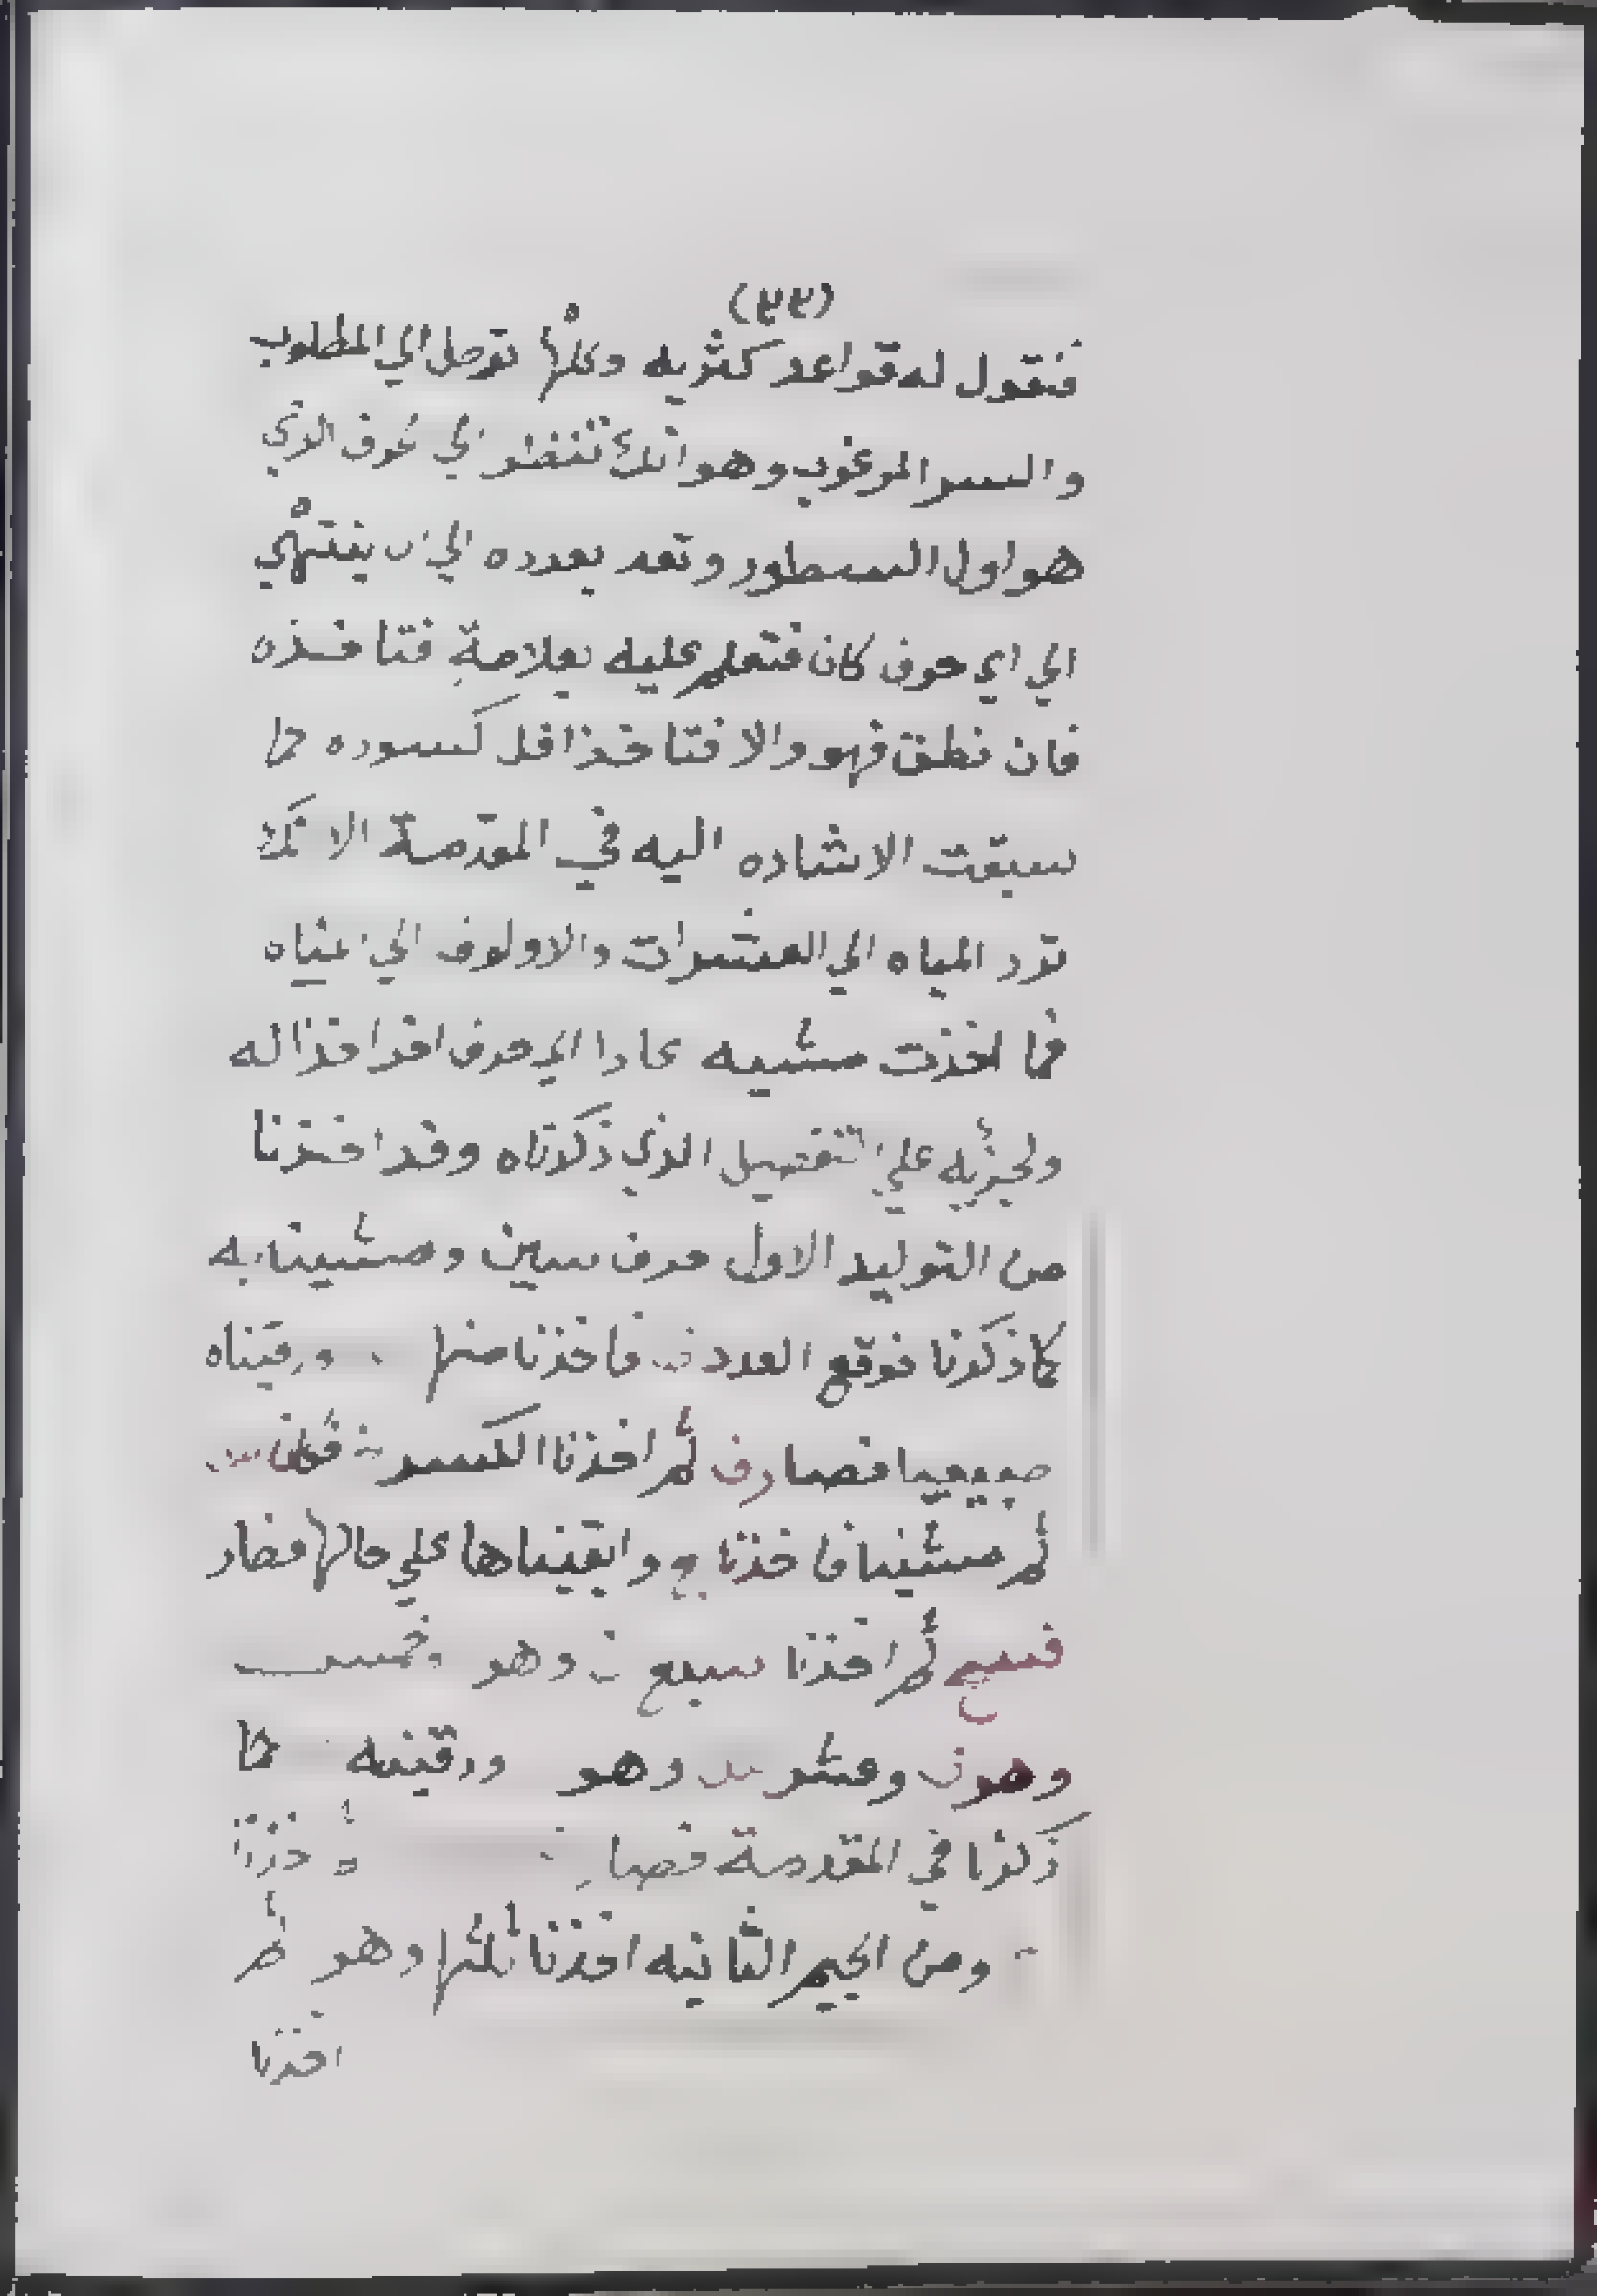 (٣٣)
فنقول له قواعد كثريه وكلها توصل الي المطلوب
والسر المرغوب وهو انك تنظر الي الذي
هو اول السطور وتعد بعدده الي ان ينتهي
الي اي حرف كان فتعلم عليه بعلامة فتاخذه
فان نطق فهو والا فتاخذ اقل كسوره كما
سبقت الاشاره اليه في المقدمة الا انك
ترد المياه الي العشرات والاولوف الي
فما اخذت مشيه الي حرف اخر اخذ اله
ولجزيه علي التفصيل الذي ذكرناه وقد اخذنا
من التوليد الاول حرف سين ومشينا به
كما ذكرنا فوقع العدد ف فاخذنا منها ورقيناه
فصار ف ثم اخذنا الكسر
ثم مشينا فاخذنا وابقيناها علي حالها فصار
ثم اخذنا سبع ن وهو وخمس
وهو ن وعشر وهو ورقينه كما
ذكرنا في المقدمة فصار
ومن الجيم الثانيه اخذنا ثلثها وهو ثم
اخذنا